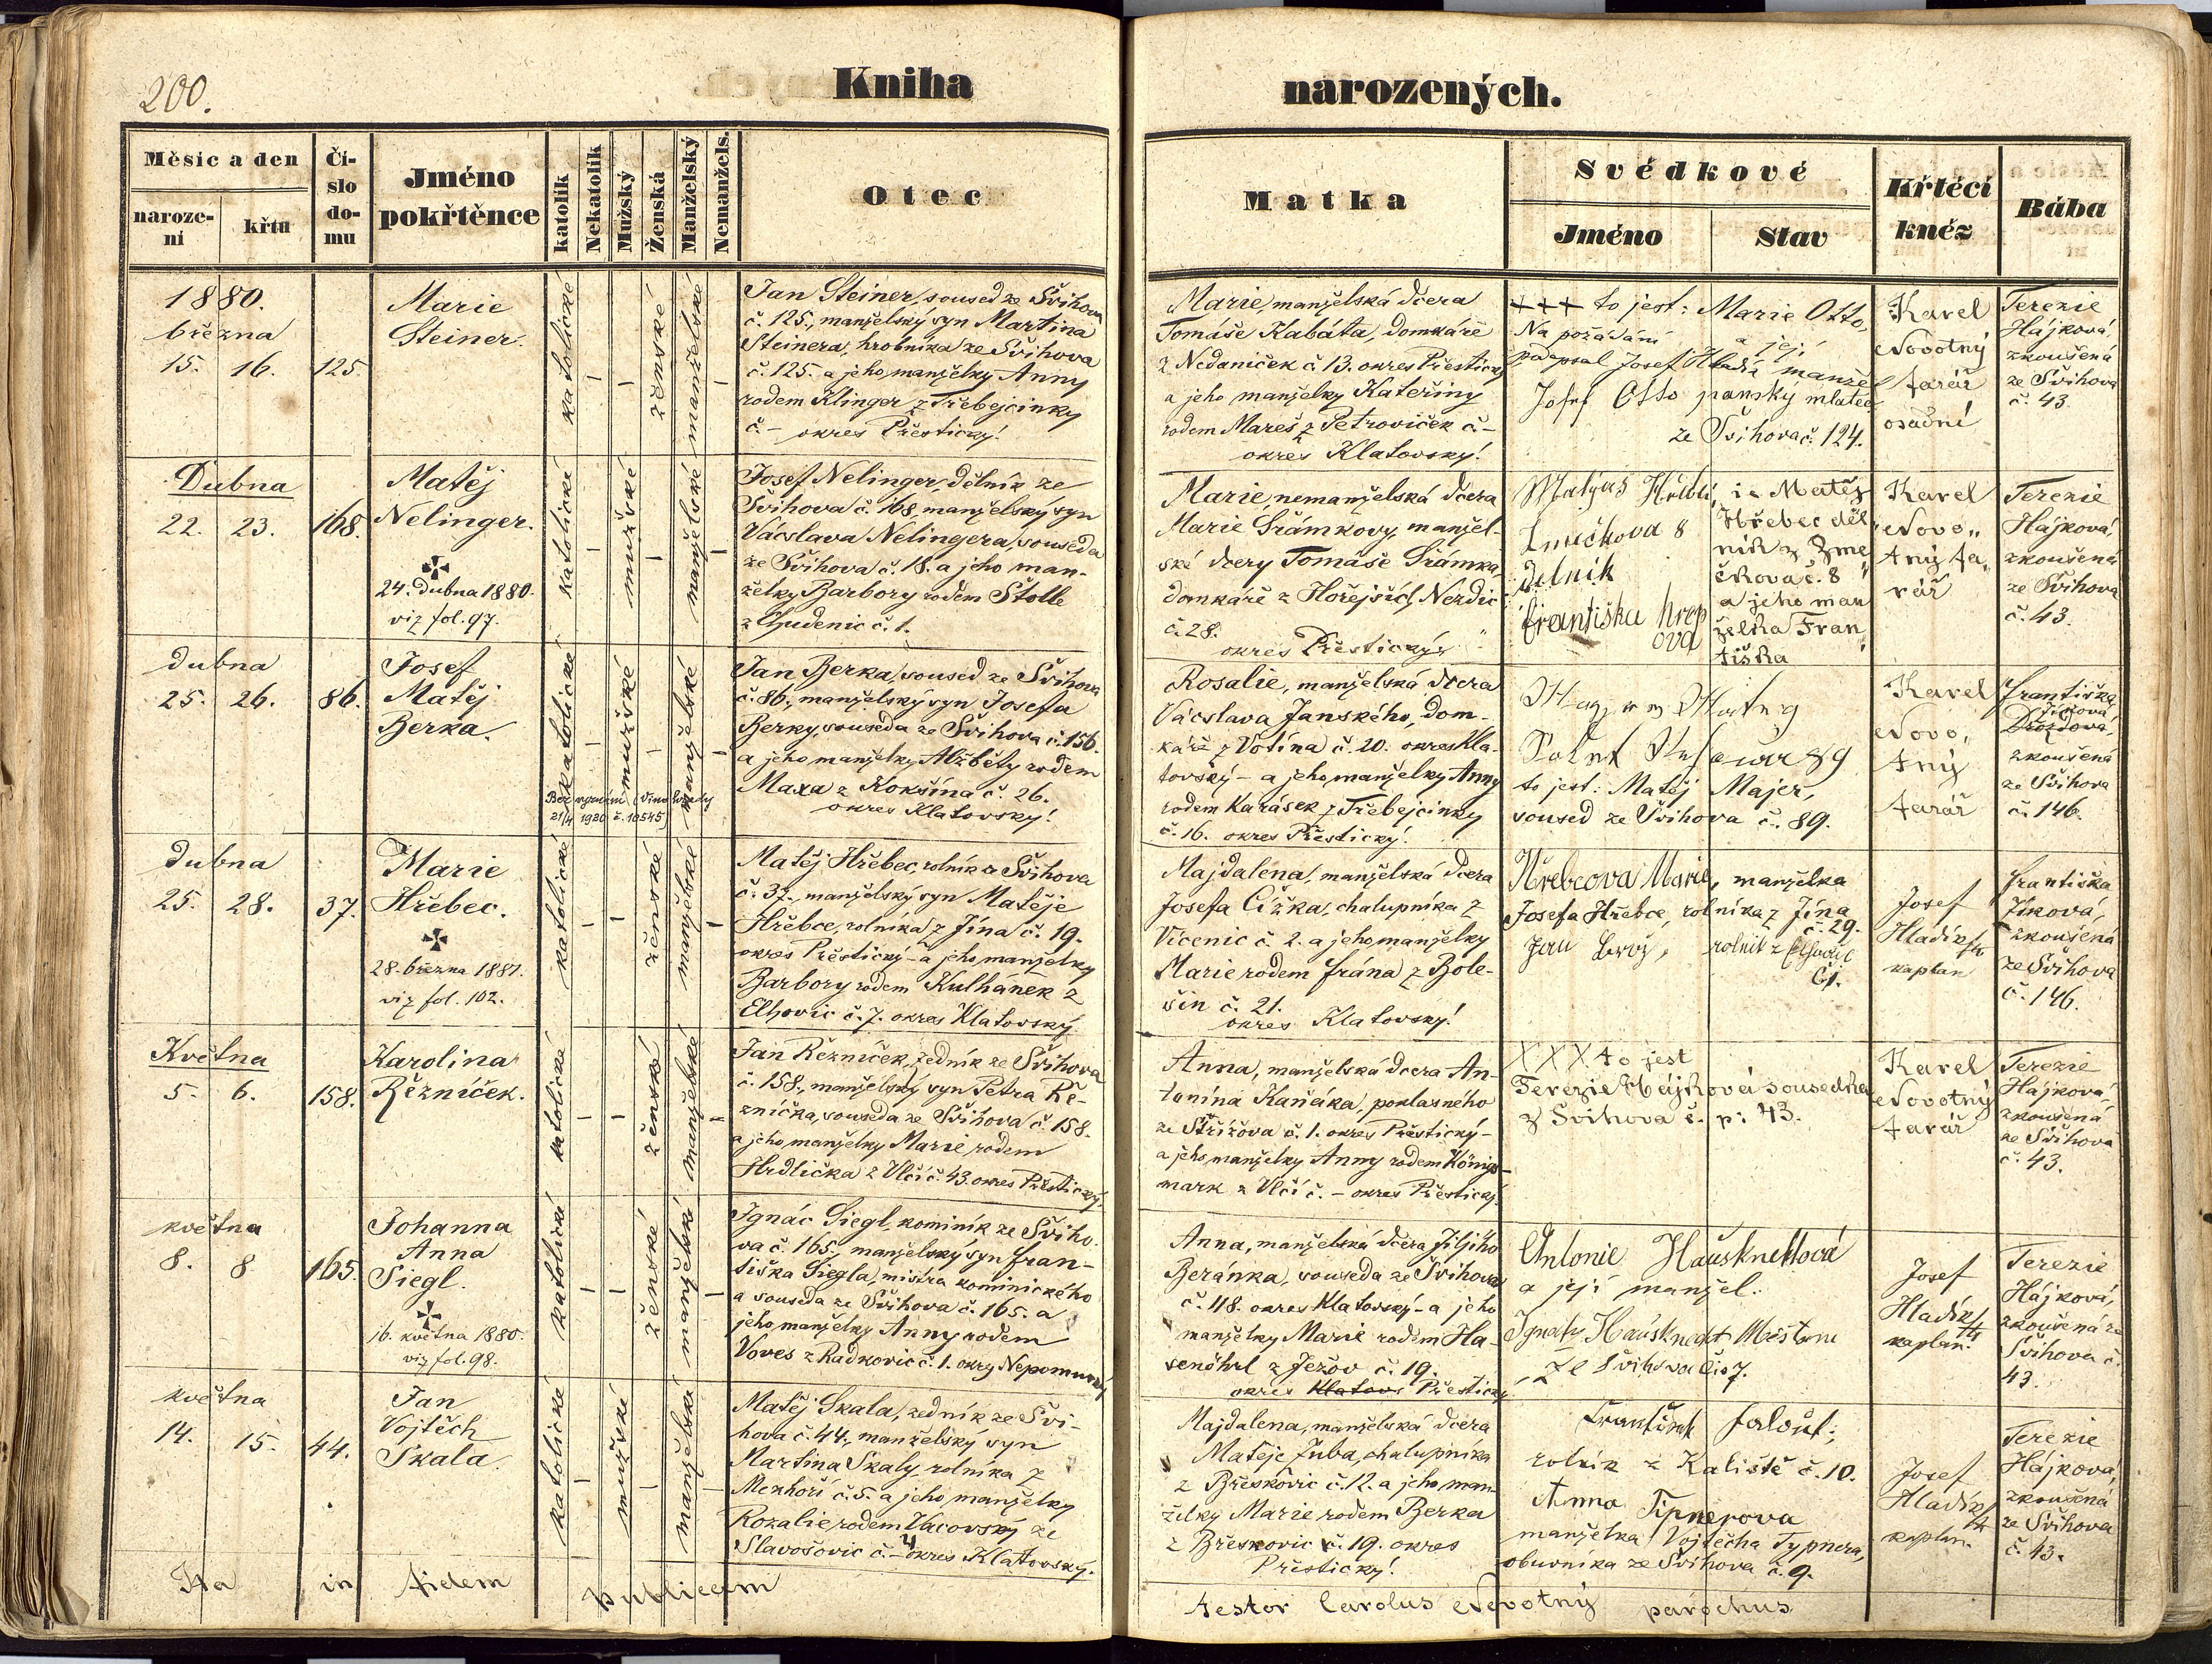 200.
Kniha
narozených.
Měsíc a den
naroze-
ní
křtu
Čí-
slo
do-
mu
Jméno
pokřtěnce
katolík
Nekatolík
Mužský
Ženská
Manželský
Nemanžels.
Otec
Matka
Svědkové
Jméno
Stav
Křtící
kněz
Bába
1880.
března
15. 16. 125.
Marie
Steiner.
katolické
ženské
manželské
Jan Steiner, soused ze Švihova
č. 125., manželský syn Martina
Steinera, hrobníka ze Švihova
č. 125. a jeho manželky Anny
rodem Klinger z Třebejcinky
č. – okres Přestický!
Marie, manželská dcera
Tomáše Kabáta, domkáře
z Nedaniček č. 13. okres Přestický
a jeho manželky Kateřiny
rodem Mareš z Petroviček č. –
okres Klatovský!
+++ to jest: Marie Otto,
Na požádání a její
podepsal Josef Hladík manžel
Josef Otto panský mlatec
ze Švihova č. 124.
Karel
Novotný
farář
osadní
Terezie
Hájková,
zkoušená
ze Švihova
č. 43.
Dubna
22. 23. 168.
Matěj
Nelinger.
24. dubna 1880.
viz fol. 97.
katolické
mužské
manželské
Josef Nelinger, dělník ze
Švihova č. 168, manželský syn
Václava Nelingera, souseda
ze Švihova č. 18. a jeho man-
želky Barbory rodem Štolle
z Chudenic č. 1.
Marie, nemanželská dcera
Marie Šrámkovy, manžel-
ské dcery Tomáše Šrámka,
domkáře z Hořejších Nezdic
č. 28.
okres Přestický
Matyas
Zmečkova 8
dělník
Františka Hřeb
ová
i. Matěj
Hřebec děl
ník z Zme
čkova č. 8
a jeho man
želka Fran
tiška
Karel
Novo„
tný fa„
rář
Terezie
Hájková,
zkoušená
ze Švihova
č. 43.
dubna
25. 26. 86.
Josef
Matěj
Berka.
katolické
mužské
manželské
Bez vyznání
21/4 1920 č. 10545
Jan Berka, soused ze Švihova
č. 86., manželský syn Josefa
Berky, souseda ze Švihova č. 156.
a jeho manželky Alžběty rodem
Maxa z Kokšína č. 26.
okres Klatovský!
Rosalie, manželská dcera
Václava Janského, dom-
káře z Votína č. 20. okres Kla-
tovský – a jeho manželky Anny
rodem Karásek z Třebejcinky
č. 16. okres Přestický!
to jest: Matěj Majer,
soused ze Švihova č. 89.
Karel
Novo„
tný
farář
Františka
Jíková
Drozdová,
zkoušená
ze Švihova
č. 146.
dubna
25. 28. 37.
Marie
Hřebec.
28. března 1881.
viz fol. 102.
katolické
ženské
manželské
Matěj Hřebec, rolník z Švihova
č. 37., manželský syn Matěje
Hřebce, rolníka z Jína č. 19.
okres Přestický – a jeho manželky
Barbory rodem Kulhánek z
Elhovic č. 7. okres Klatovský.
Majdaléna, manželská dcera
Josefa Čížka, chalupníka z
Vícenic č. 2. a jeho manželky
Marie rodem Frána z Bole-
šin č. 21.
okres Klatovský!
Hřebcova Marie, manželka
Josefa Hřebce, rolníka z Jína
č. 29.
rolník z
č. 1.
Josef
Hladík
kaplan
Františka
Jíková,
zkoušená
ze Švihova
č. 146.
Května
5. 6. 158.
Karolina
Řezníček.
katolické
ženské
manželské
Jan Řezníček, zedník ze Švihova
č. 158., manželský syn Petra Ře-
zníčka, souseda ze Švihova č. 158.
a jeho manželky Marie rodem
Hrdlička z Vlčí č. 43. okres Přestický.
Anna, manželská dcera An-
tonína Kaňáka, poklasného
ze Střížova č. 1. okres Přestický –
a jeho manželky Anny rodem Königs-
mark z Vlčí č. – okres Přestický.
XXX to jest
Terezie Hájková sousedka
z Švihova č. p: 43.
Karel
Novotný
farář
Terezie
Hájková,
zkoušená
ze Švihova
č. 43.
května
8. 8 165.
Johanna
Anna
Siegl.
16. května 1880.
viz fol. 98.
katolické
ženské
manželské
Ignác Siegl, kominík ze Švího-
va č. 165., manželský syn Fran-
tiška Siegla, mistra kominického
a souseda ze Švihova č. 165. a
jeho manželky Anny rodem
Voves z Radkovic č. 1. okres Nepomucký
Anna, manželská dcera Jiljího
Beránka, souseda ze Švihova
č. 118. okres Klatovský – a jeho
manželky Marie rodem Ha-
senöhrl z Ježov č. 19.
okres Klatovs Přestický
Antonie Hausknehtová
a její manžel.
Ignatz Hausknecht
ze Švihova čís 7.
Josef
Hladík
kaplan.
Terezie
Hájková,
zkoušená ze
Švihova č.
43.
května
14. 15. 44.
Jan
Vojtěch
Skala.
katolické
mužské
manželské
Matěj Skala, zedník ze Švi-
hova č. 44., manželský syn
Martina Skaly, rolníka z
Mezhoří č. 5. a jeho manželky
Rozalie rodem Vacovský ze
Slavošovic č. 4 okres Klatovský.
Majdalena, manželská dcera
Matěje Juba, chalupníka
z Břeskovic č. 12. a jeho man-
želky Marie rodem Berka
z Břeskovic č. 19. okres
Přestický!
František
rolník z Kaliště č. 10.
Anna Tipnerova
manželka Vojtěcha Typnera,
obuvníka ze Švihova č. 9.
Josef
Hladík
kaplan.
Terezie
Hájková,
zkoušená
ze Švihova
č. 43.
Ita in fidem publicam
testor Carolus Novotný parochus